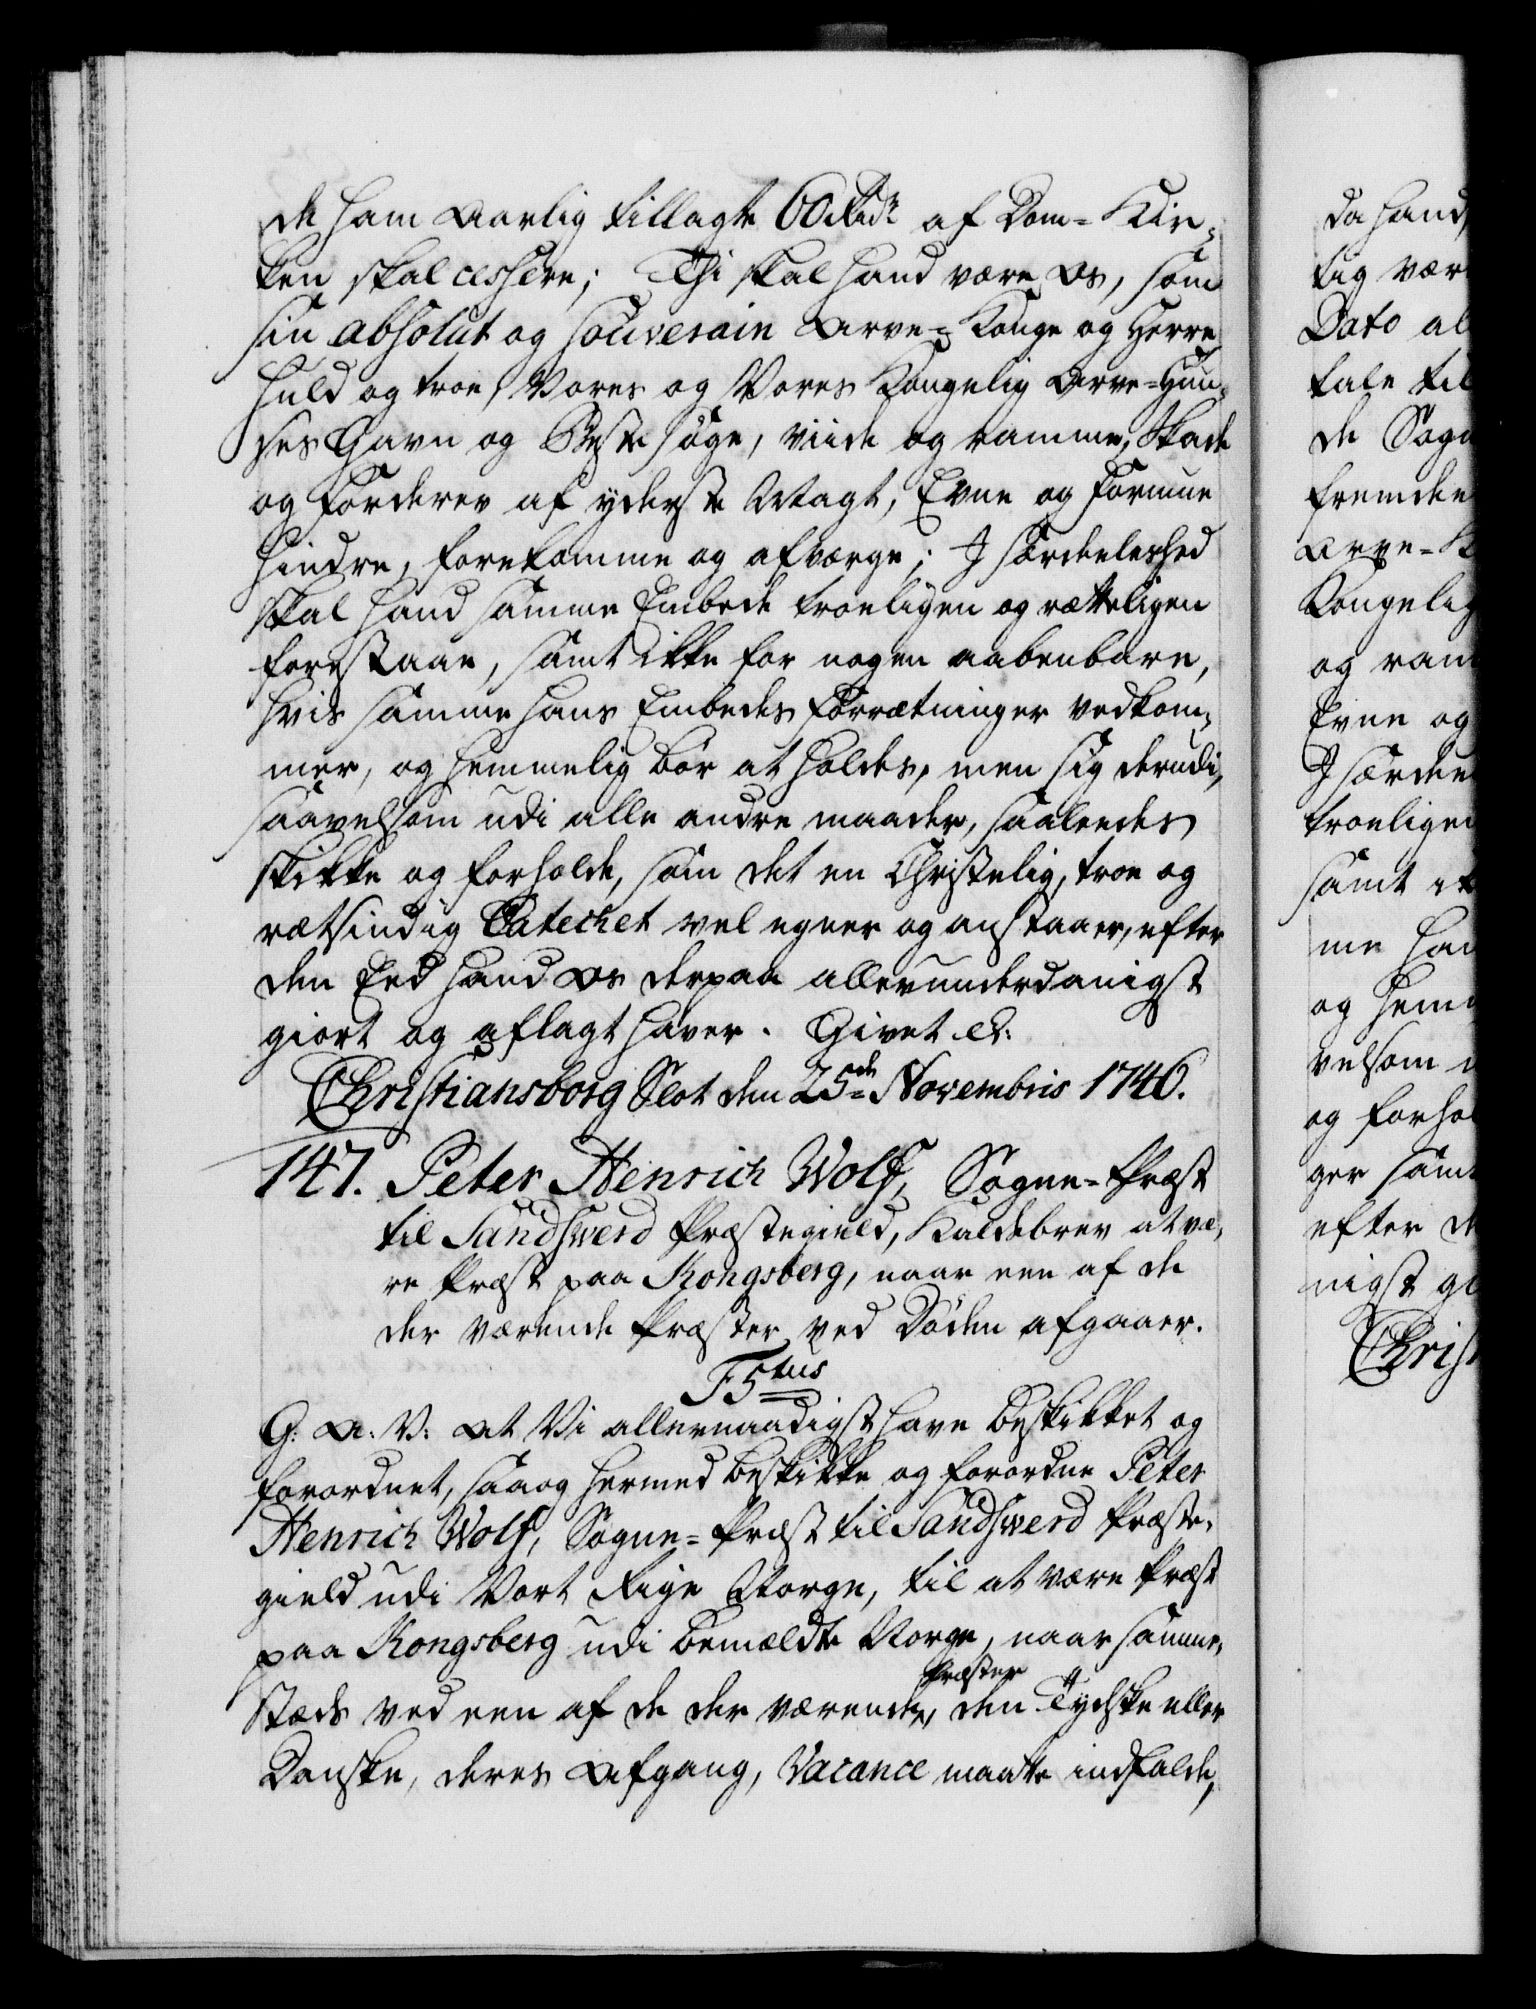 de ham Aarlig tillagte 60 Rdr af Dom-Kir-
ken skal cessere; Thi skal hand være Os, som
sin absolut og souverain Arve-Konge og Herre
Huld og troe, Vores og Vores Kongelig Arve-Huu-
ses Gavn og Beste søge, viide og ramme, Skade
og Forderv af yderste Magt, Evne og Formue
hindre, forekomme og afværge; I særdeleshed
skal hand samme Embede troeligen og rætteligen
forestaae, samt ikke for nogen aabenbare,
hvis samme hans Embedes Forrætninger vedkom-
mer, og hemmelig bør at holdes, men sig derudi,
saavelsom udi alle andre maader, saaledes
skikke og forholde, som det en Christelig, troe og
rætsindig Catechet vel egner og anstaaer, efter
den Eed hand Os derpaa allerunderdanigst
giort og aflagt haver. Givet &:
Christiansborg Slot den 25de Novembris 1746.
147. Peter Henrich Wolf, Sogne-Præst
til Sandsverd Præstegield, Kaldebrev at væ-
re Præst paa Kongsberg, naar een af de
der værende Præster ved Døden afgaaer.
F5tus
G: A: V: At Vi allernaadigst have beskikket og
forordnet, saa og hermed beskikke og forordne Peter
Henrich Wolf, Sogne-Præst til Sandsverd Præste-
gield udi Vort Rige Norge, til at være Præst
paa Kongsberg udi bemældte Norge, naar samme-
Præster
stæds ved een af de der værende, den Tydske eller
Danske, deres Afgang, Vacance maatte indfalde,
da hand
lig vær
Dato al
tale til
de Sogn
fremdee
Arve-K
Kongelig
og ram
Evne og
I særdee
troeligen
samt ik
me han
og hem
velsom
og forho
ger samt
efter d
nigst gi
Christ